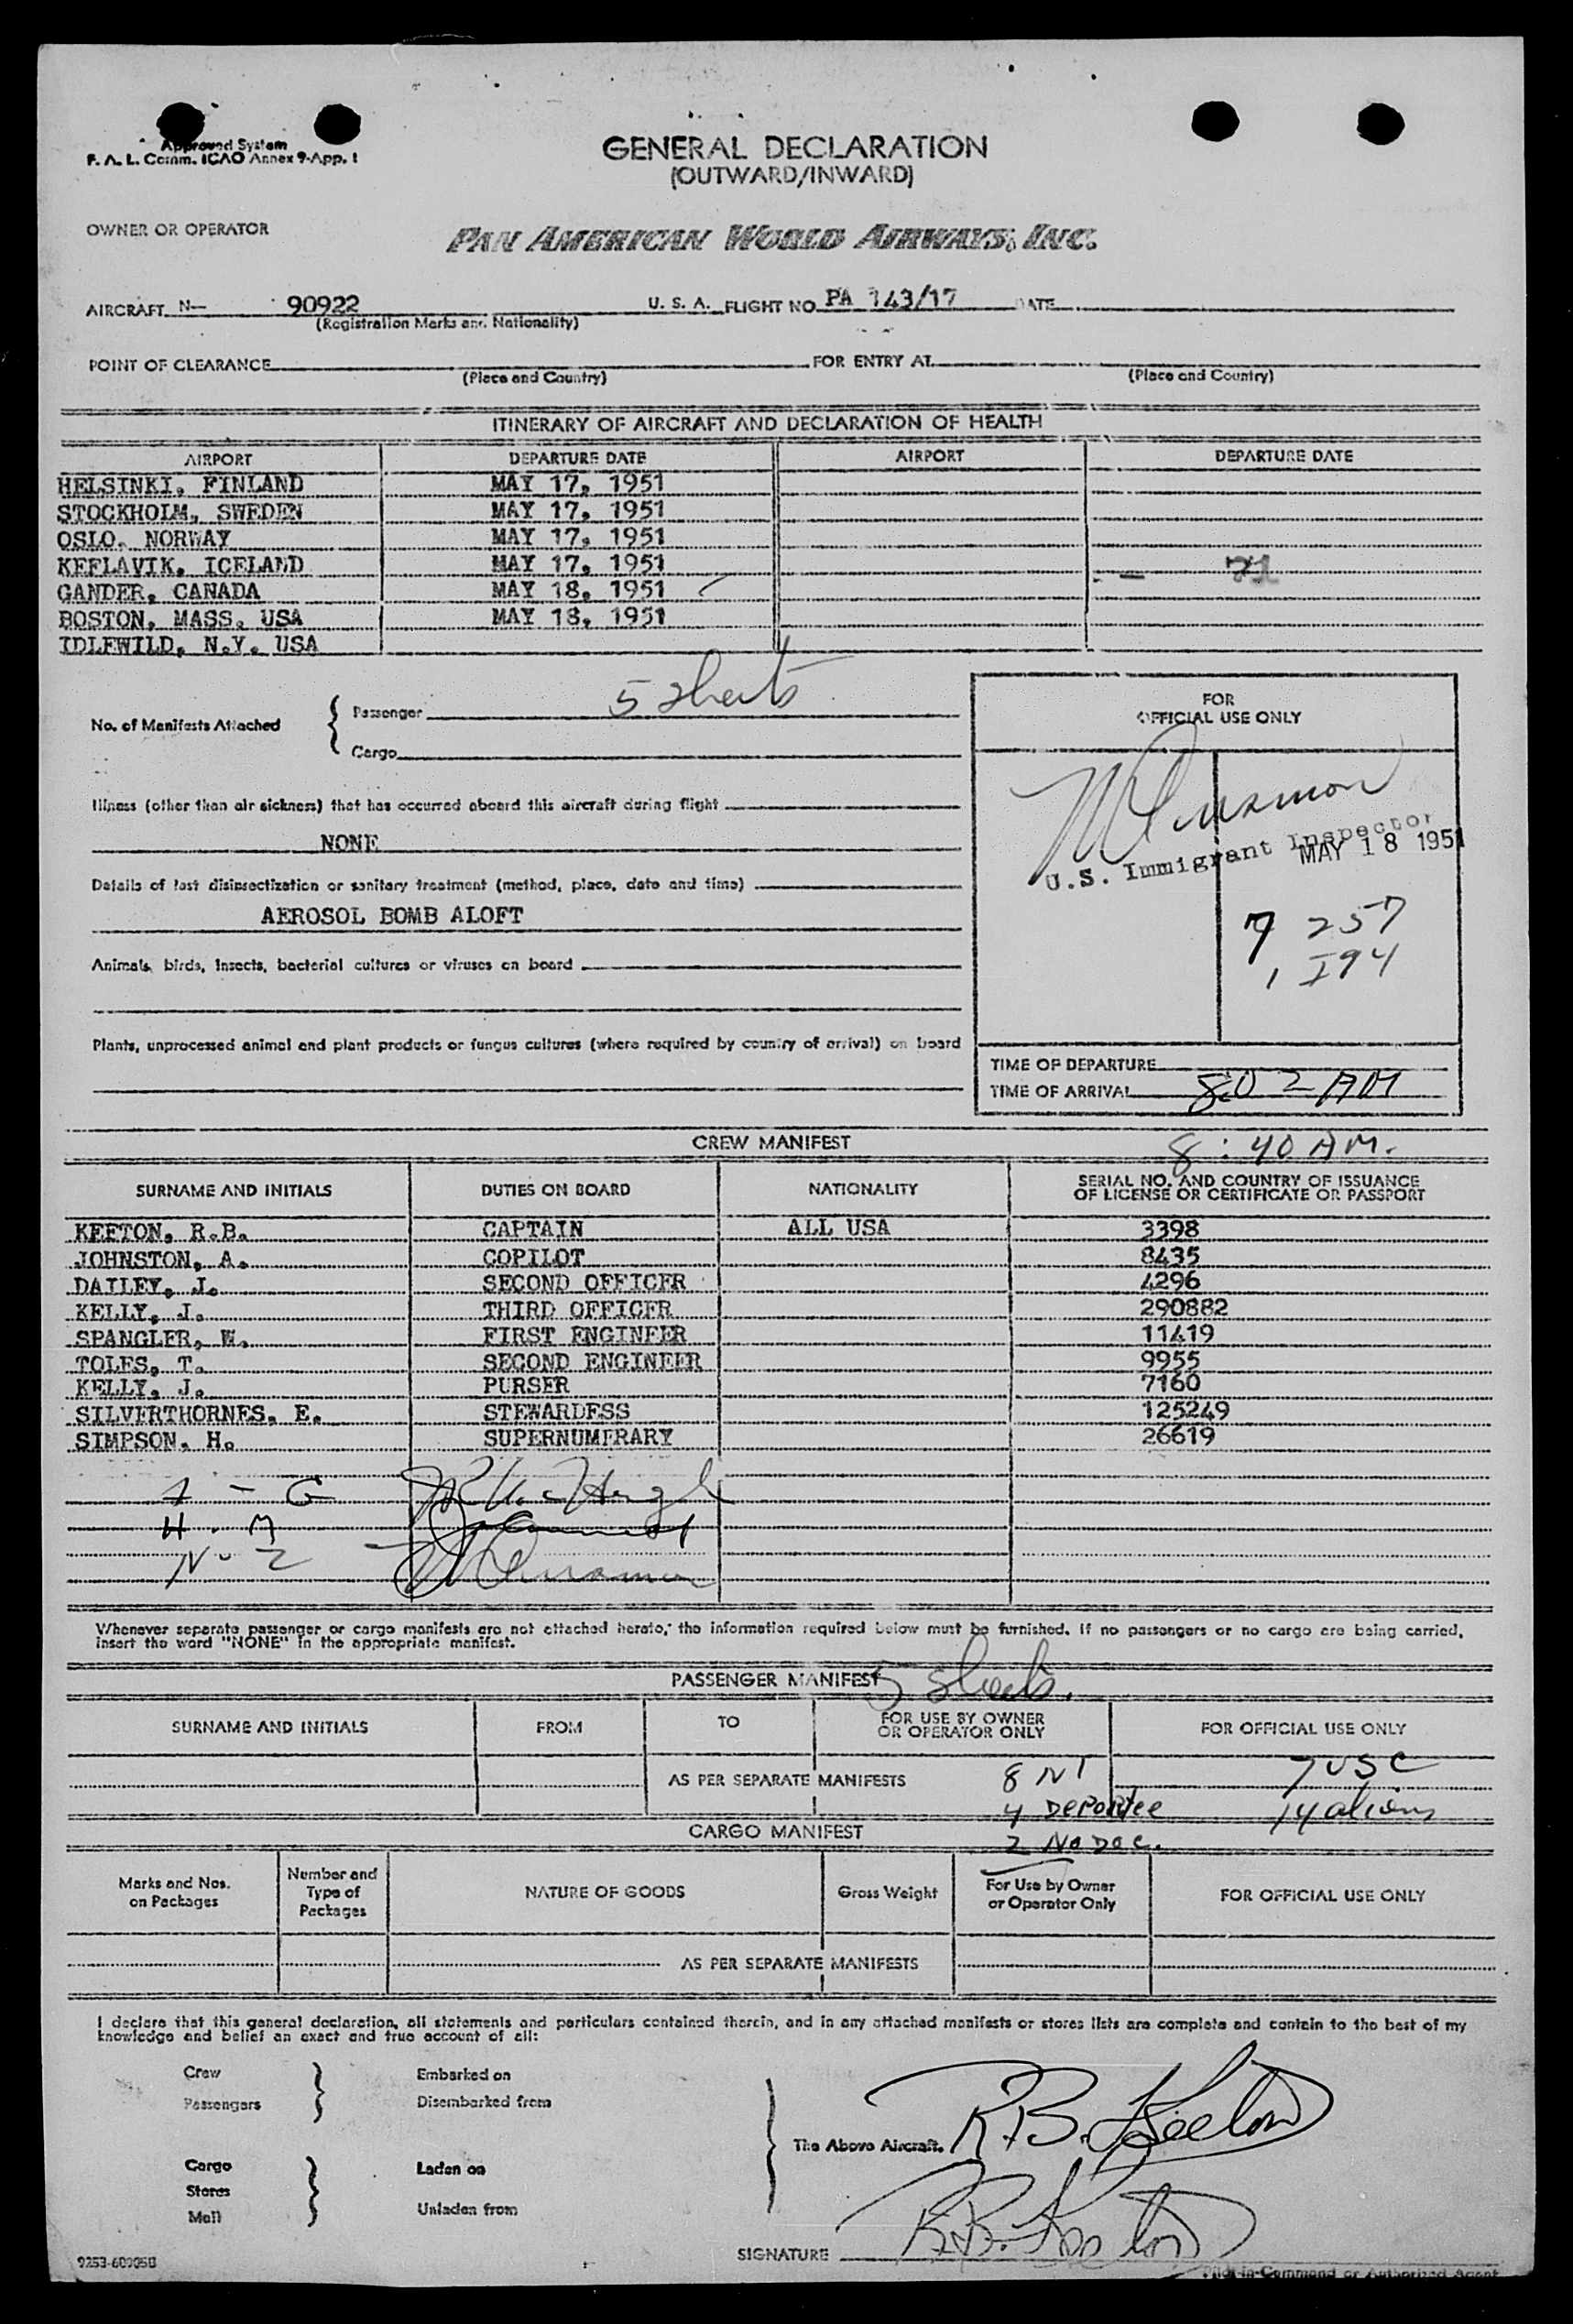 Approved System
F. A. L. Comm. ICAO Annex 9-App. 1
GENERAL DECLARATION
(OUTWARD/INWARD)
OWNER OR OPERATOR
PAN AMERICAN WORLD AIRWAYS, INC.
AIRCRAFT N— 90922 U. S. A. FLIGHT NO. PA 143/17 DATE
(Registration Marks and Nationality)
POINT OF CLEARANCE FOR ENTRY AT
(Place and Country) (Place and Country)
ITINERARY OF AIRCRAFT AND DECLARATION OF HEALTH
AIRPORT DEPARTURE DATE AIRPORT DEPARTURE DATE
HELSINKI, FINLAND MAY 17, 1951
STOCKHOLM, SWEDEN MAY 17, 1951
OSLO, NORWAY MAY 17, 1951
KEFLAVIK, ICELAND MAY 17, 1951
GANDER, CANADA MAY 18, 1951
BOSTON, MASS. USA MAY 18, 1951
IDLEWILD, N.Y. USA
5 sheets
No. of Manifests Attached { Passenger
Cargo
FOR
OFFICIAL USE ONLY
Illness (other than air sickness) that has occurred aboard this aircraft during flight
NONE
U.S. Immigrant Inspector
MAY 18 1951
Details of last disinsectization or sanitary treatment (method, place, date and time)
AEROSOL BOMB ALOFT
7 257
1 I94
Animals, birds, insects, bacterial cultures or viruses on board
Plants, unprocessed animal and plant products or fungus cultures (where required by country of arrival) on board
TIME OF DEPARTURE
TIME OF ARRIVAL 8:02 AM
CREW MANIFEST 8:40 AM.
SURNAME AND INITIALS DUTIES ON BOARD NATIONALITY SERIAL NO. AND COUNTRY OF ISSUANCE
OF LICENSE OR CERTIFICATE OR PASSPORT
KEETON, R.B. CAPTAIN ALL USA 3398
JOHNSTON, A. COPILOT 8435
DAILEY, J. SECOND OFFICER 4296
KELLY, J. THIRD OFFICER 290882
SPANGLER, W. FIRST ENGINEER 11419
TOLES, T. SECOND ENGINEER 9955
KELLY, J. PURSER 7160
SILVERTHORNES, E. STEWARDESS 125249
SIMPSON, H. SUPERNUMERARY 26619
- G
H - M
N - Z
Whenever separate passenger or cargo manifests are not attached hereto, the information required below must be furnished. If no passengers or no cargo are being carried,
insert the word "NONE" in the appropriate manifest.
PASSENGER MANIFEST 5 sheets.
SURNAME AND INITIALS FROM TO FOR USE BY OWNER
OR OPERATOR ONLY FOR OFFICIAL USE ONLY
AS PER SEPARATE MANIFESTS 8 NI 7 USC
4 Deportee 14 aliens
CARGO MANIFEST 2 No Doc.
Marks and Nos.
on Packages Number and
Type of
Packages NATURE OF GOODS Gross Weight For Use by Owner
or Operator Only FOR OFFICIAL USE ONLY
AS PER SEPARATE MANIFESTS
I declare that this general declaration, all statements and particulars contained therein, and in any attached manifests or stores lists are complete and contain to the best of my
knowledge and belief an exact and true account of all:
Crew Embarked on
Passengers Disembarked from
The Above Aircraft. R.B. Keeton
Cargo Laden on
Stores
Mail Unladen from
SIGNATURE R.B. Keeton
Pilot-in-Command or Authorized Agent